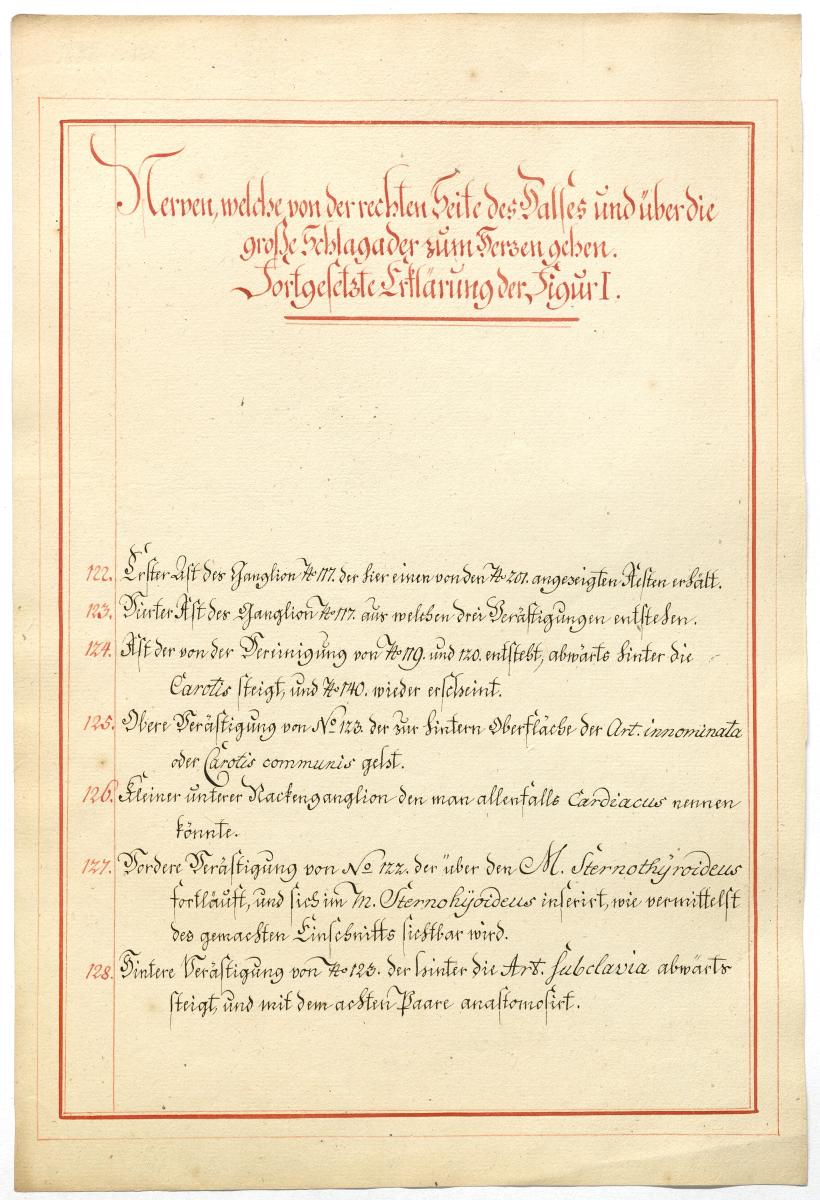 Nerven, welche von der rechten Seite des Halses und über die
große Schlagader zum Herzen gehen.
Fortgesetzte Erklärung der Figur I.
122. Erster Ast des Ganglion No 117. der hier einen von den No 201. angezeigten Aesten erhält.
123. Vierter Ast des Ganglion No 117. aus welchen drei Verästigungen entstehen.
124. Ast der von der Vereinigung von No 119. und 120. entsteht, abwärts hinter die
Carotis steigt, und No 140. wieder erscheint.
125. Obere Verästigung von No 123. der zur hintern Oberfläche der Art. innominata
oder Carotis communis geht.
126. Kleiner unterer Nackenganglion den man allenfalls Cardiacus nennen
könnte.
127. Vordere Verästigung von No 122. der über den M. Sternothÿroideus
fortläuft, und sich im M. Sternohÿoideus inserirt, wie vermittelst
des gemachten Einschnitts sichtbar wird.
128. Hintere Verästigung von No 123. der hinter die Art. subclavia abwärts
steigt, und mit dem achten Paare anastomosirt.